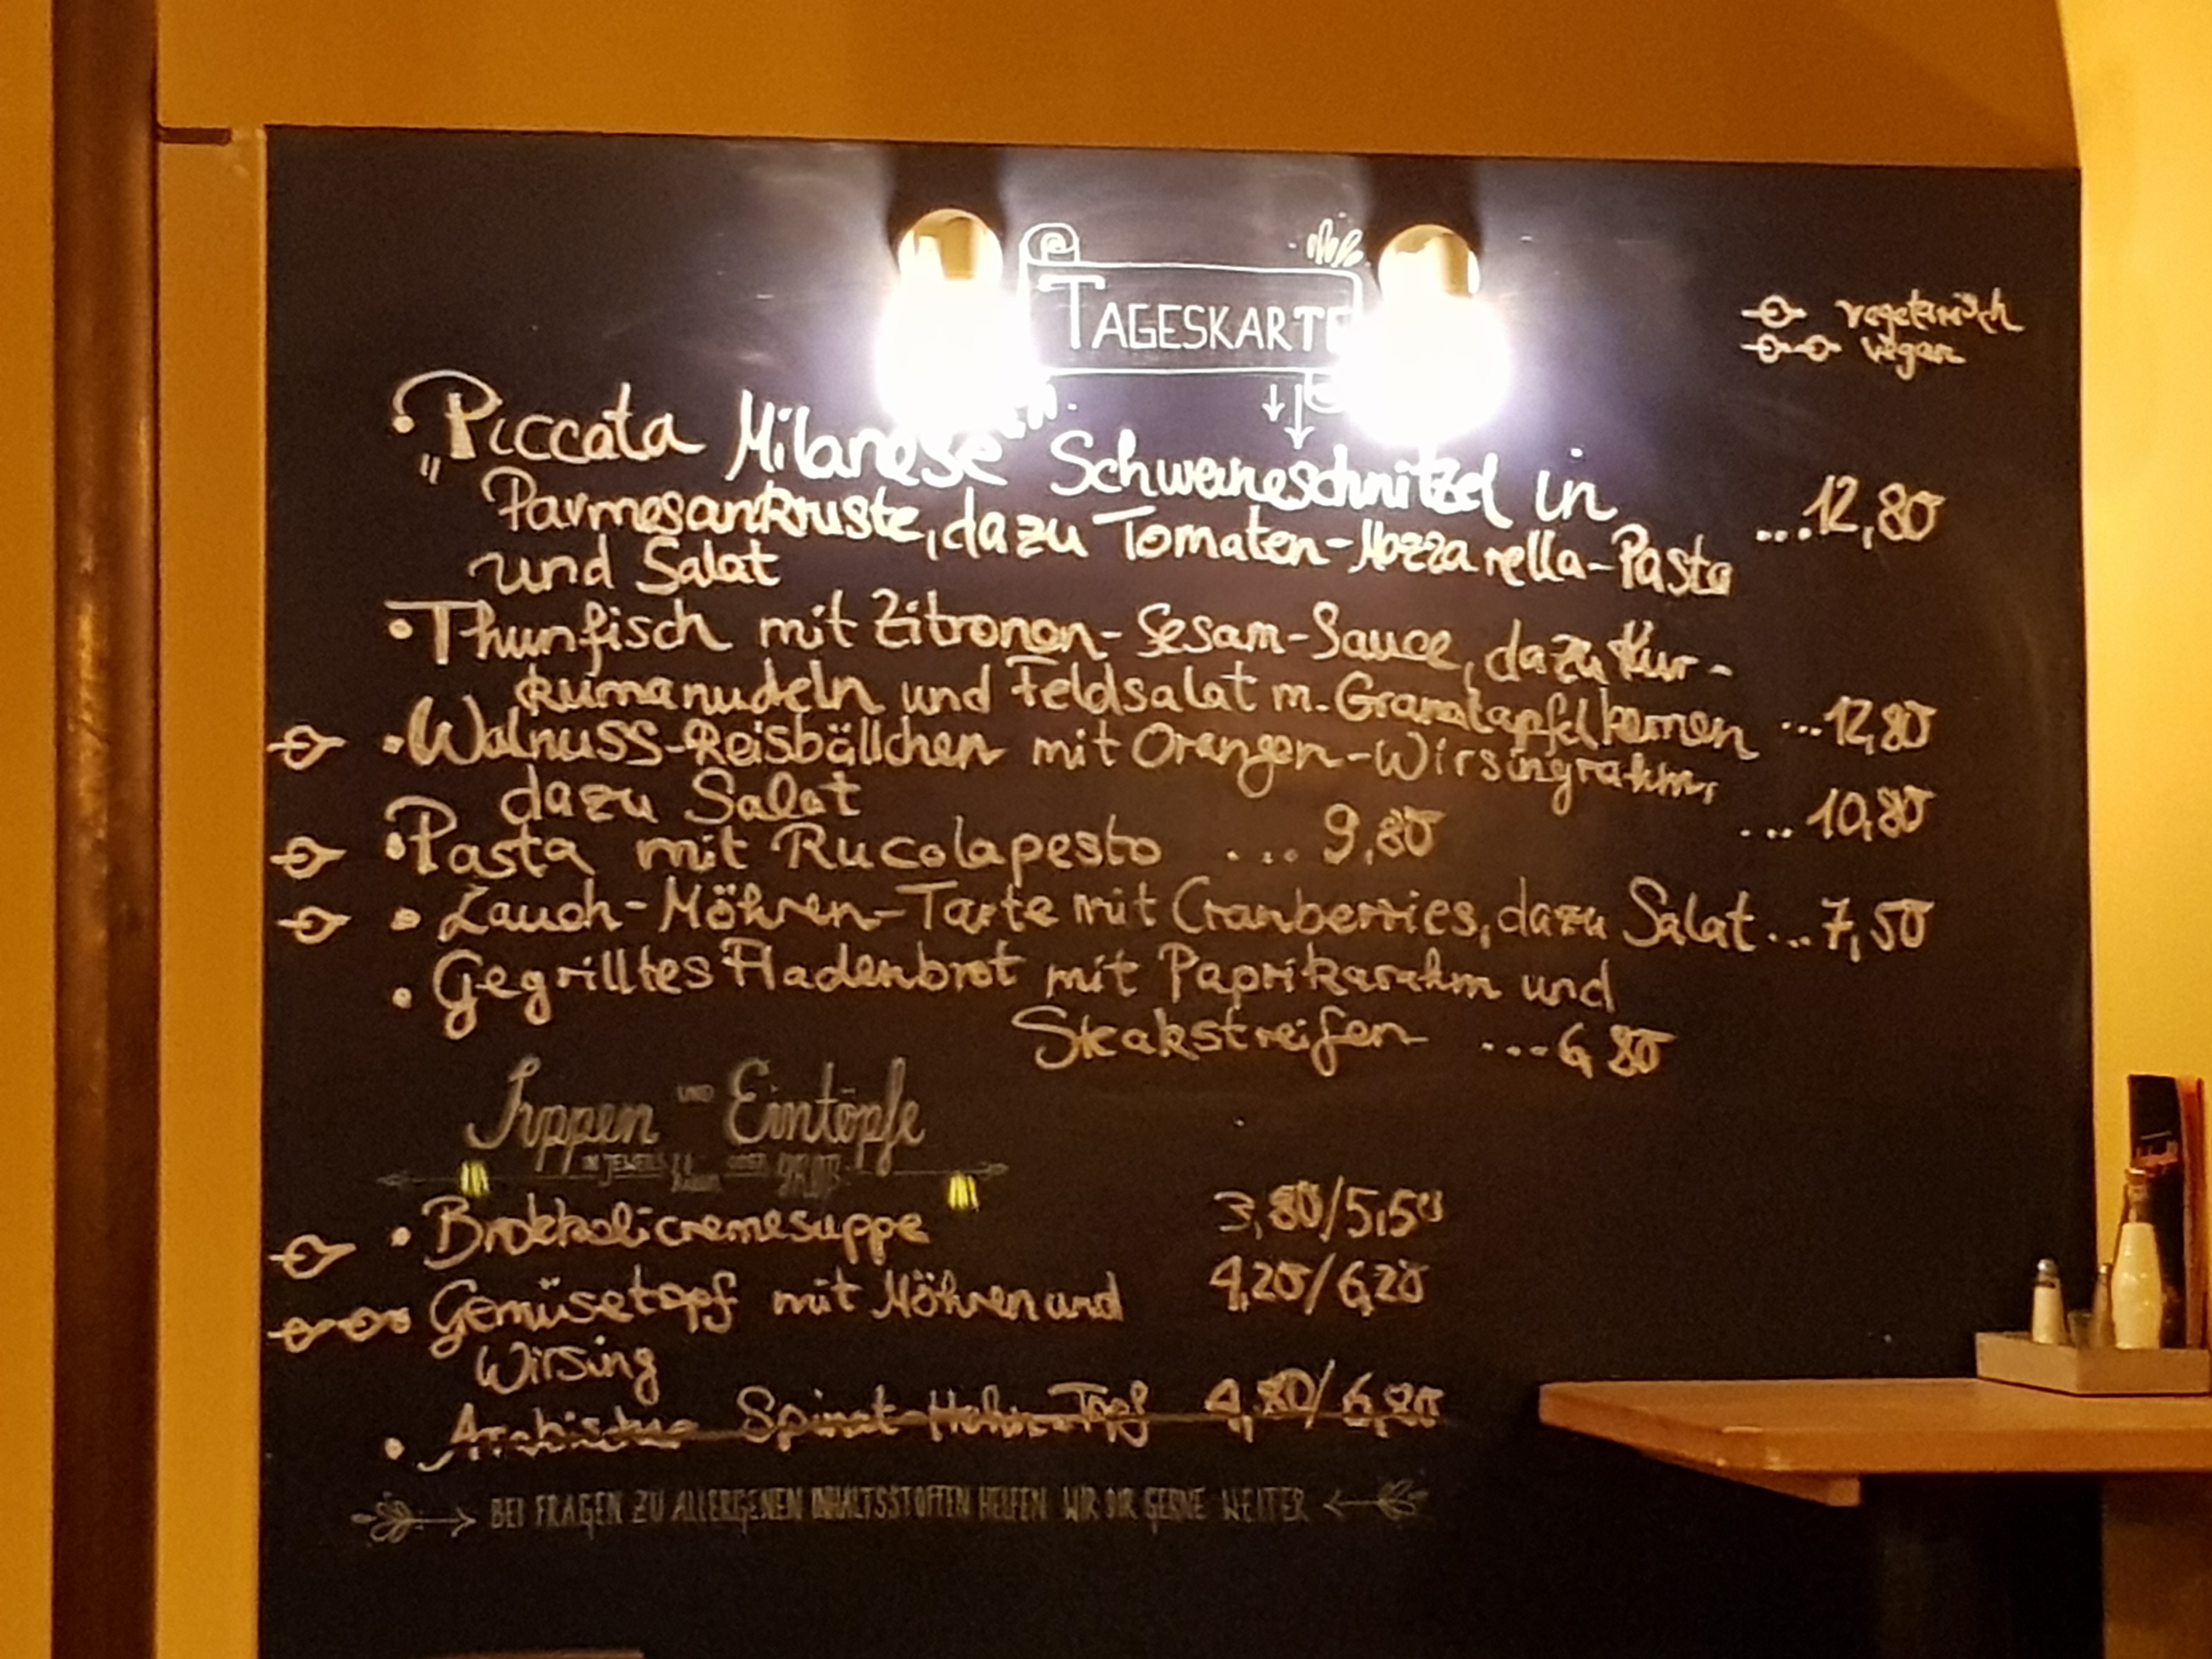 TAGESKARTE
vegetarisch
vegan
• „Piccata Milanese“ Schweineschnitzel in
Parmesankruste, dazu Tomaten-Mozzarella-Pasta ...12,80
und Salat
• Thunfisch mit Zitronen-Sesam-Sauce, dazu Kur-
kumanudeln und Feldsalat m. Granatapfelkernen ...12,80
• Walnuss-Reisbällchen mit Orangen-Wirsingrahm,
dazu Salat ...10,80
• Pasta mit Rucolapesto ... 9,80
• Lauch-Möhren-Tarte mit Cranberries, dazu Salat...7,50
• Gegrilltes Fladenbrot mit Paprikarahm und
Steakstreifen ...6,80
Suppen UND Eintöpfe
IN JEWEILS klein ODER GROß
• Brokkolicremesuppe 3,80/5,50
Gemüsetopf mit Möhren und 4,20/6,20
Wirsing
• Arabischer Spinat-Hähn.-Topf 4,80/6,80
BEI FRAGEN ZU ALLERGENEN INHALTSSTOFFEN HELFEN WIR DIR GERNE WEITER